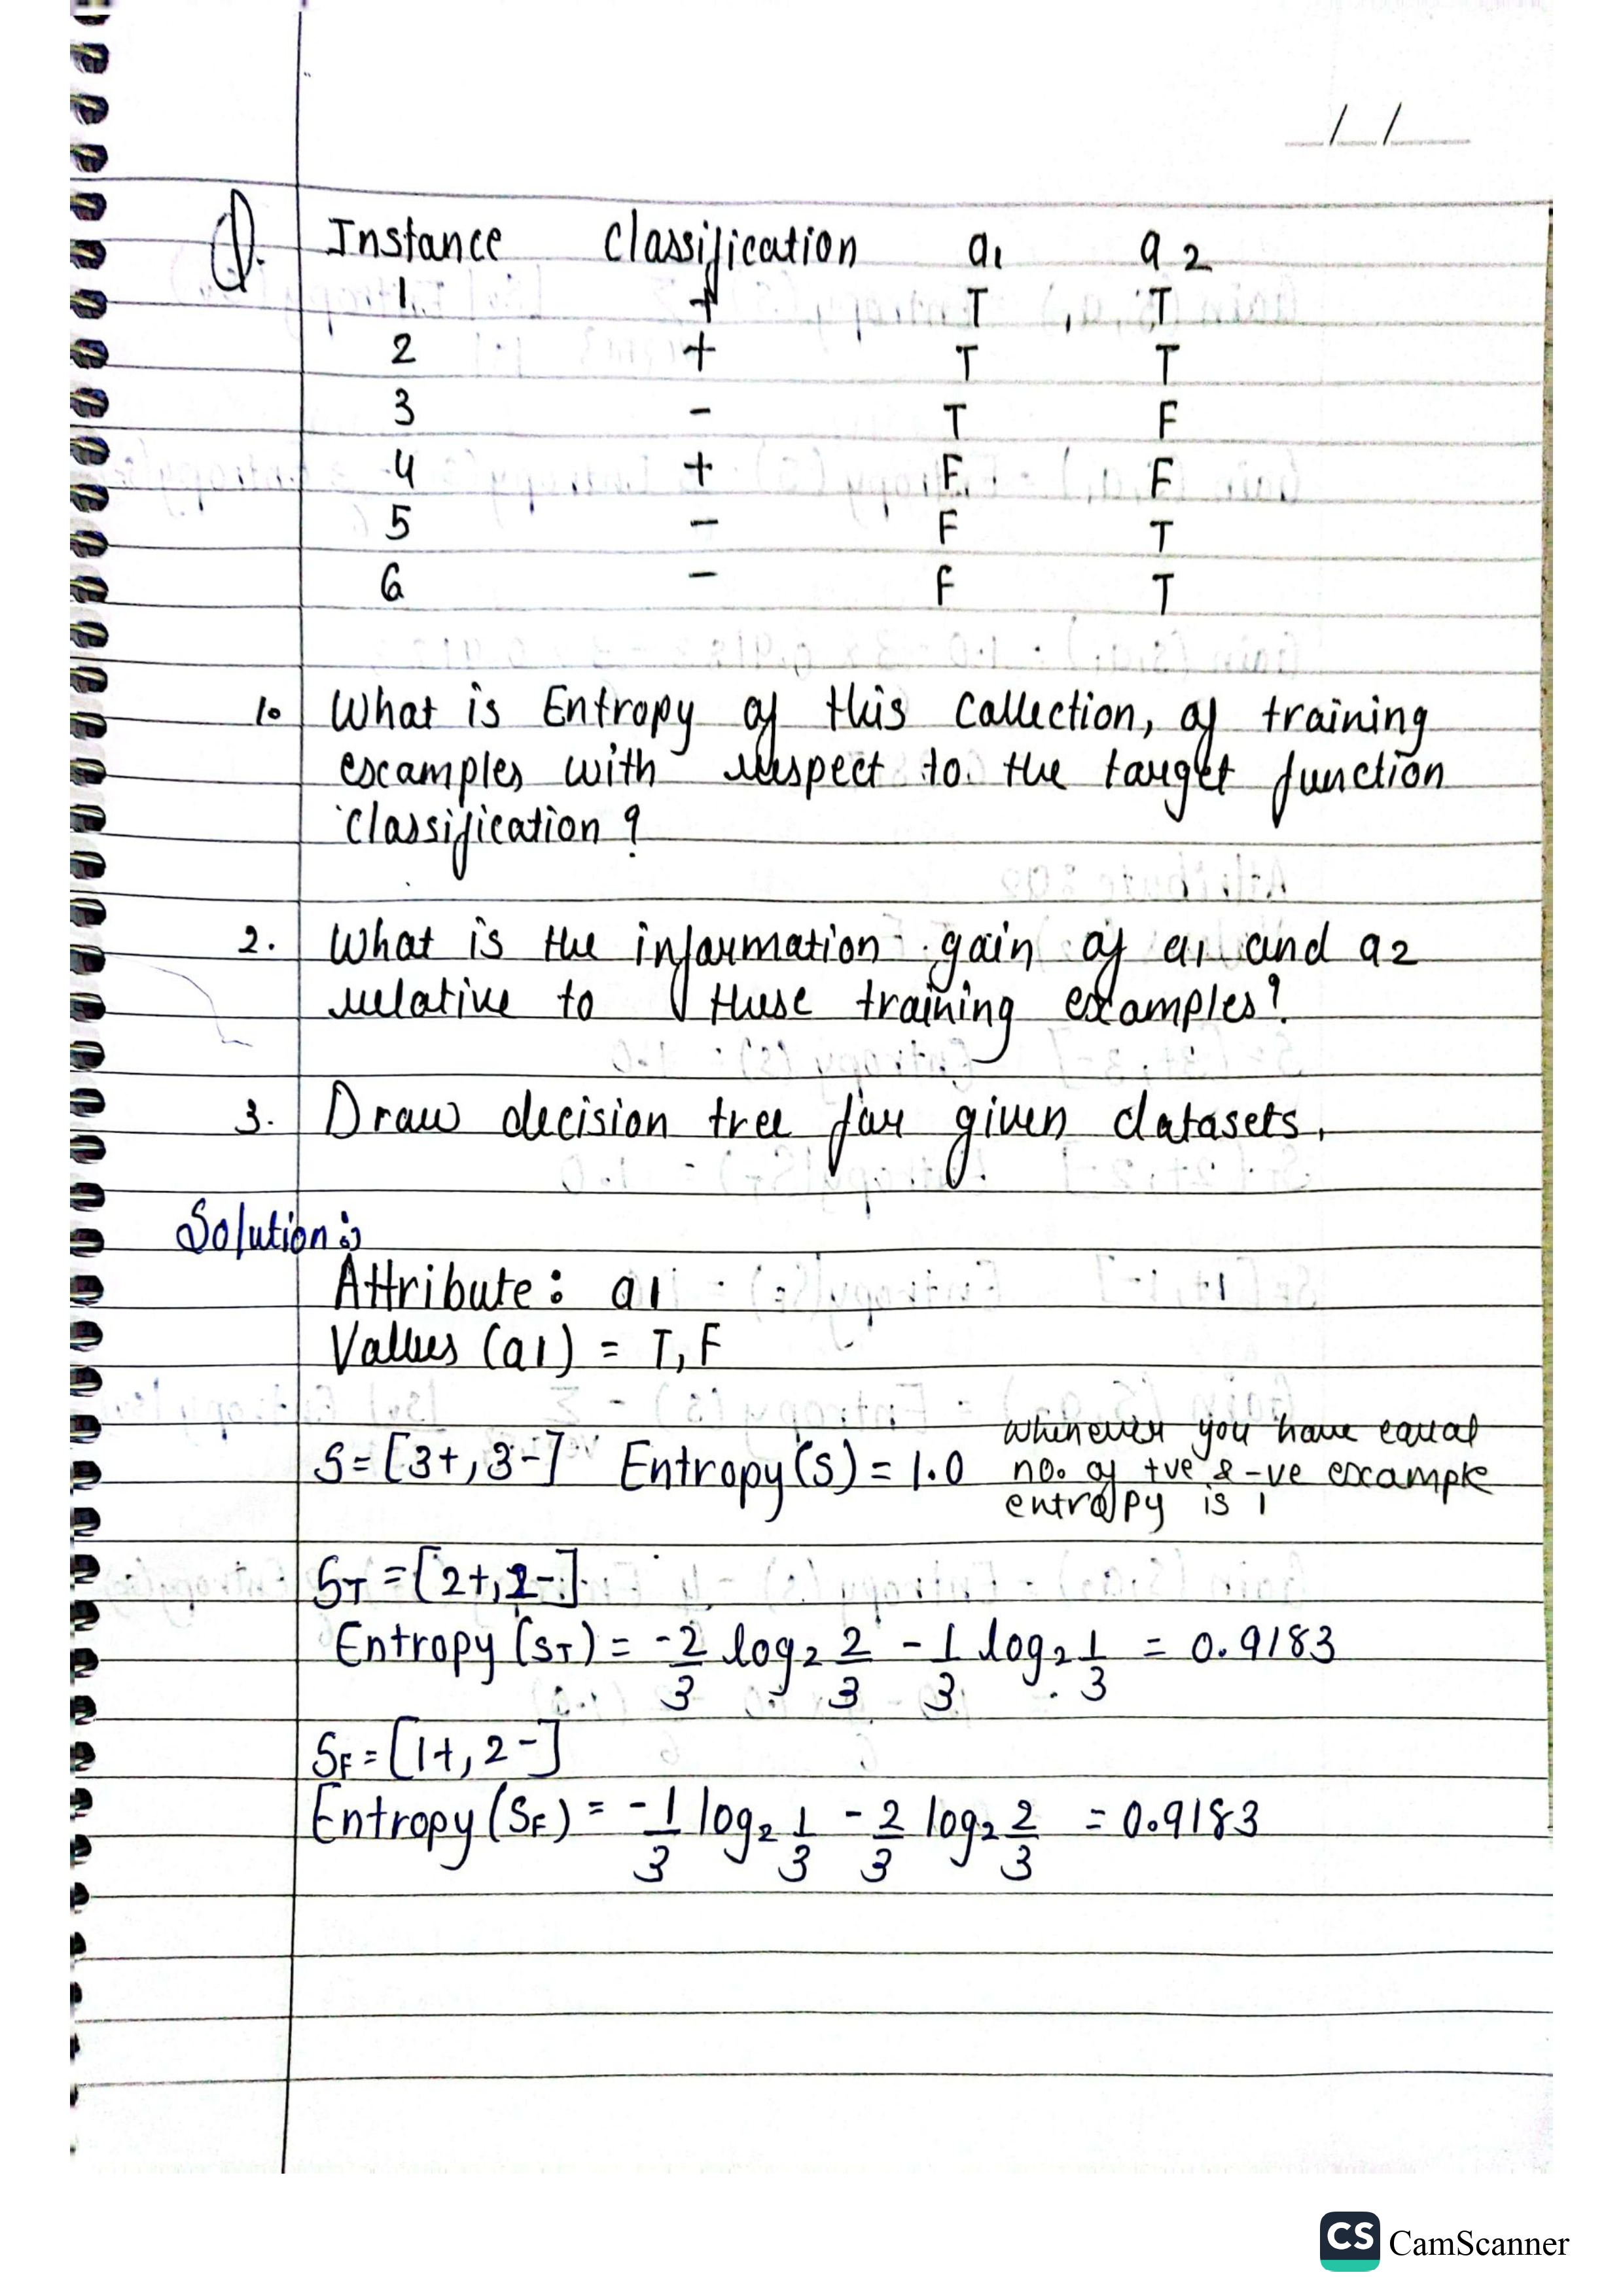 __/__/____
Q. Instance Classification a1 a2
1 + T , T
2 + T T
3 - T F
4 + F F
5 - F T
6 - F T
1. What is Entropy of this collection, of training
examples with respect to the target function
classification?
2. What is the information gain of a1 and a2
relative to these training examples?
3. Draw decision tree for given datasets.
Solution:
Attribute: a1
Values (a1) = T, F
S = [3+, 3-] Entropy(S) = 1.0 whenever you have equal
no. of +ve & -ve example
entropy is 1
ST = [2+, 1-]
Entropy (ST) = -2/3 log2 2/3 - 1/3 log2 1/3 = 0.9183
SF = [1+, 2-]
Entropy (SF) = -1/3 log2 1/3 - 2/3 log2 2/3 = 0.9183
CS CamScanner